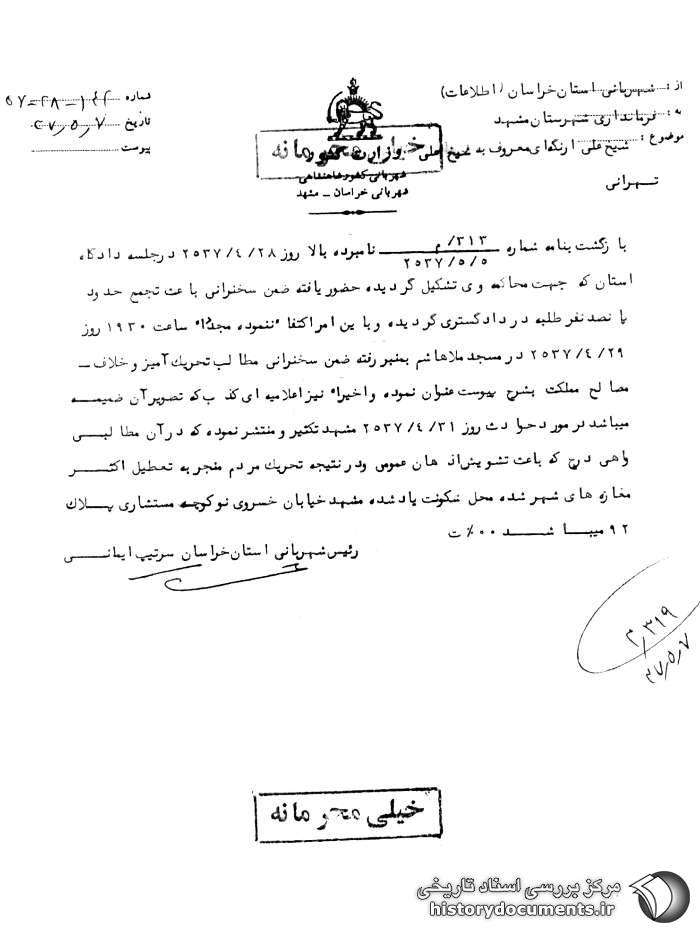 از : شهربانی استان خراسان (اطلاعات)
به : فرمانداری شهرستان مشهد
موضوع : شیخ علی ارنگه‌ای معروف به شیخ علی
تهرانی
شماره ۱۴۲-۲۸-۵۷
تاریخ ۳۷٫۵٫۷
پیوست
خیلی محرمانه
وزارت کشور
شهربانی کشور شاهنشاهی
شهربانی خراسان ـ مشهد
بازگشت بنامه شماره ۳۱۳/م نامبرده بالا روز ۲۵۳۷/۴/۲۸ در جلسه دادگاه
۲۵۳۷/۵/۵
استان که جهت محاکمه وی تشکیل گردیده حضور یافته ضمن سخنرانی باعث تجمع حدود
پانصد نفر طلبه در دادگستری گردیده و با این امر اکتفا ننموده مجدداً ساعت ۱۹۳۰ روز
۲۵۳۷/۴/۲۹ در مسجد ملاهاشم بمنبر رفته ضمن سخنرانی مطالب تحریک آمیز و خلاف ـ
مصالح مملکت بشرح پیوست عنوان نموده و اخیراً نیز اعلامیه ای کذب که تصویر آن ضمیمه
میباشد در مورد حوادث روز ۲۵۳۷/۴/۳۱ مشهد تکثیر و منتشر نموده که در آن مطالبی
واهی درج که باعث تشویش اذهان عمومی و در نتیجه تحریک مردم منجر به تعطیل اکثر
مغازه های شهر شده محل سکونت یاد شده مشهد خیابان خسروی نو کوچه مستشاری پلاک
۹۲ میباشد ۰۰٪ ت
رئیس شهربانی استان خراسان سرتیپ ایمانی
۳۱۹٫م
۳۷٫۵٫۷
خیلی محرمانه
مرکز بررسی اسناد تاریخی
historydocuments.ir